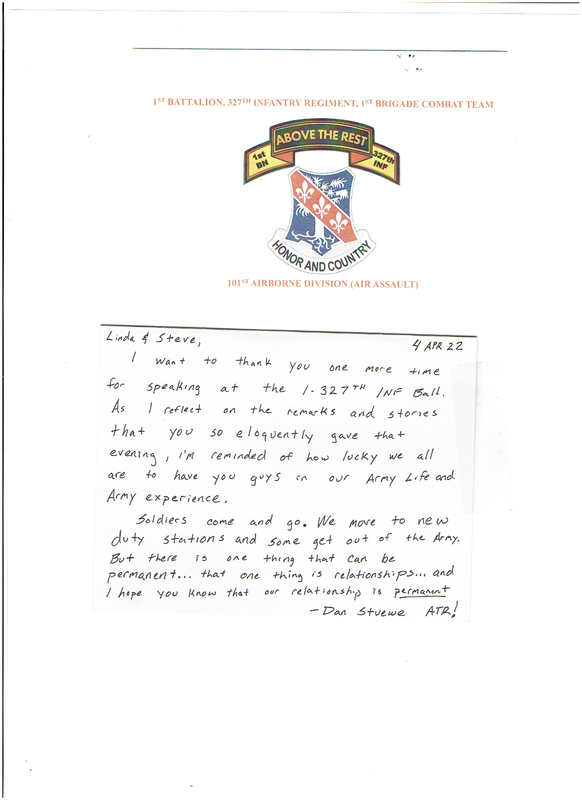 1ST BATTALION, 327TH INFANTRY REGIMENT, 1ST BRIGADE COMBAT TEAM
ABOVE THE REST
1st BN
327th INF
HONOR AND COUNTRY
101ST AIRBORNE DIVISION (AIR ASSAULT)
Linda & Steve,
4 APR 22
I want to thank you one more time
for speaking at the 1-327TH INF Ball.
As I reflect on the remarks and stories
that you so eloquently gave that
evening, I'm reminded of how lucky we all
are to have you guys in our Army Life and
Army experience.
Soldiers come and go. We move to new
duty stations and some get out of the Army.
But there is one thing that can be
permanent... that one thing is relationships... and
I hope you know that our relationship is permanent
- Dan Stuewe ATR!